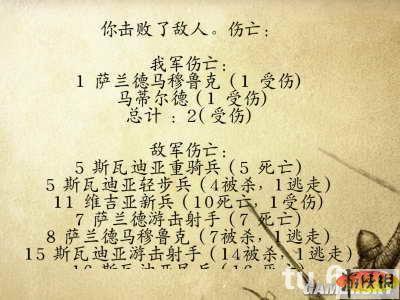 你击败了敌人。伤亡:
我军伤亡:
1 萨兰德马穆鲁克 (1 受伤)
马蒂尔德 (1 受伤)
总计 : 2( 受伤)
敌军伤亡:
5 斯瓦迪亚重骑兵 (5 死亡)
5 斯瓦迪亚轻步兵 (4被杀, 1逃走)
11 维吉亚新兵 (10死亡, 1受伤)
7 萨兰德游击射手 (7 死亡)
8 萨兰德马穆鲁克 (7被杀, 1逃走)
15 斯瓦迪亚游击射手 (14被杀, 1逃走)